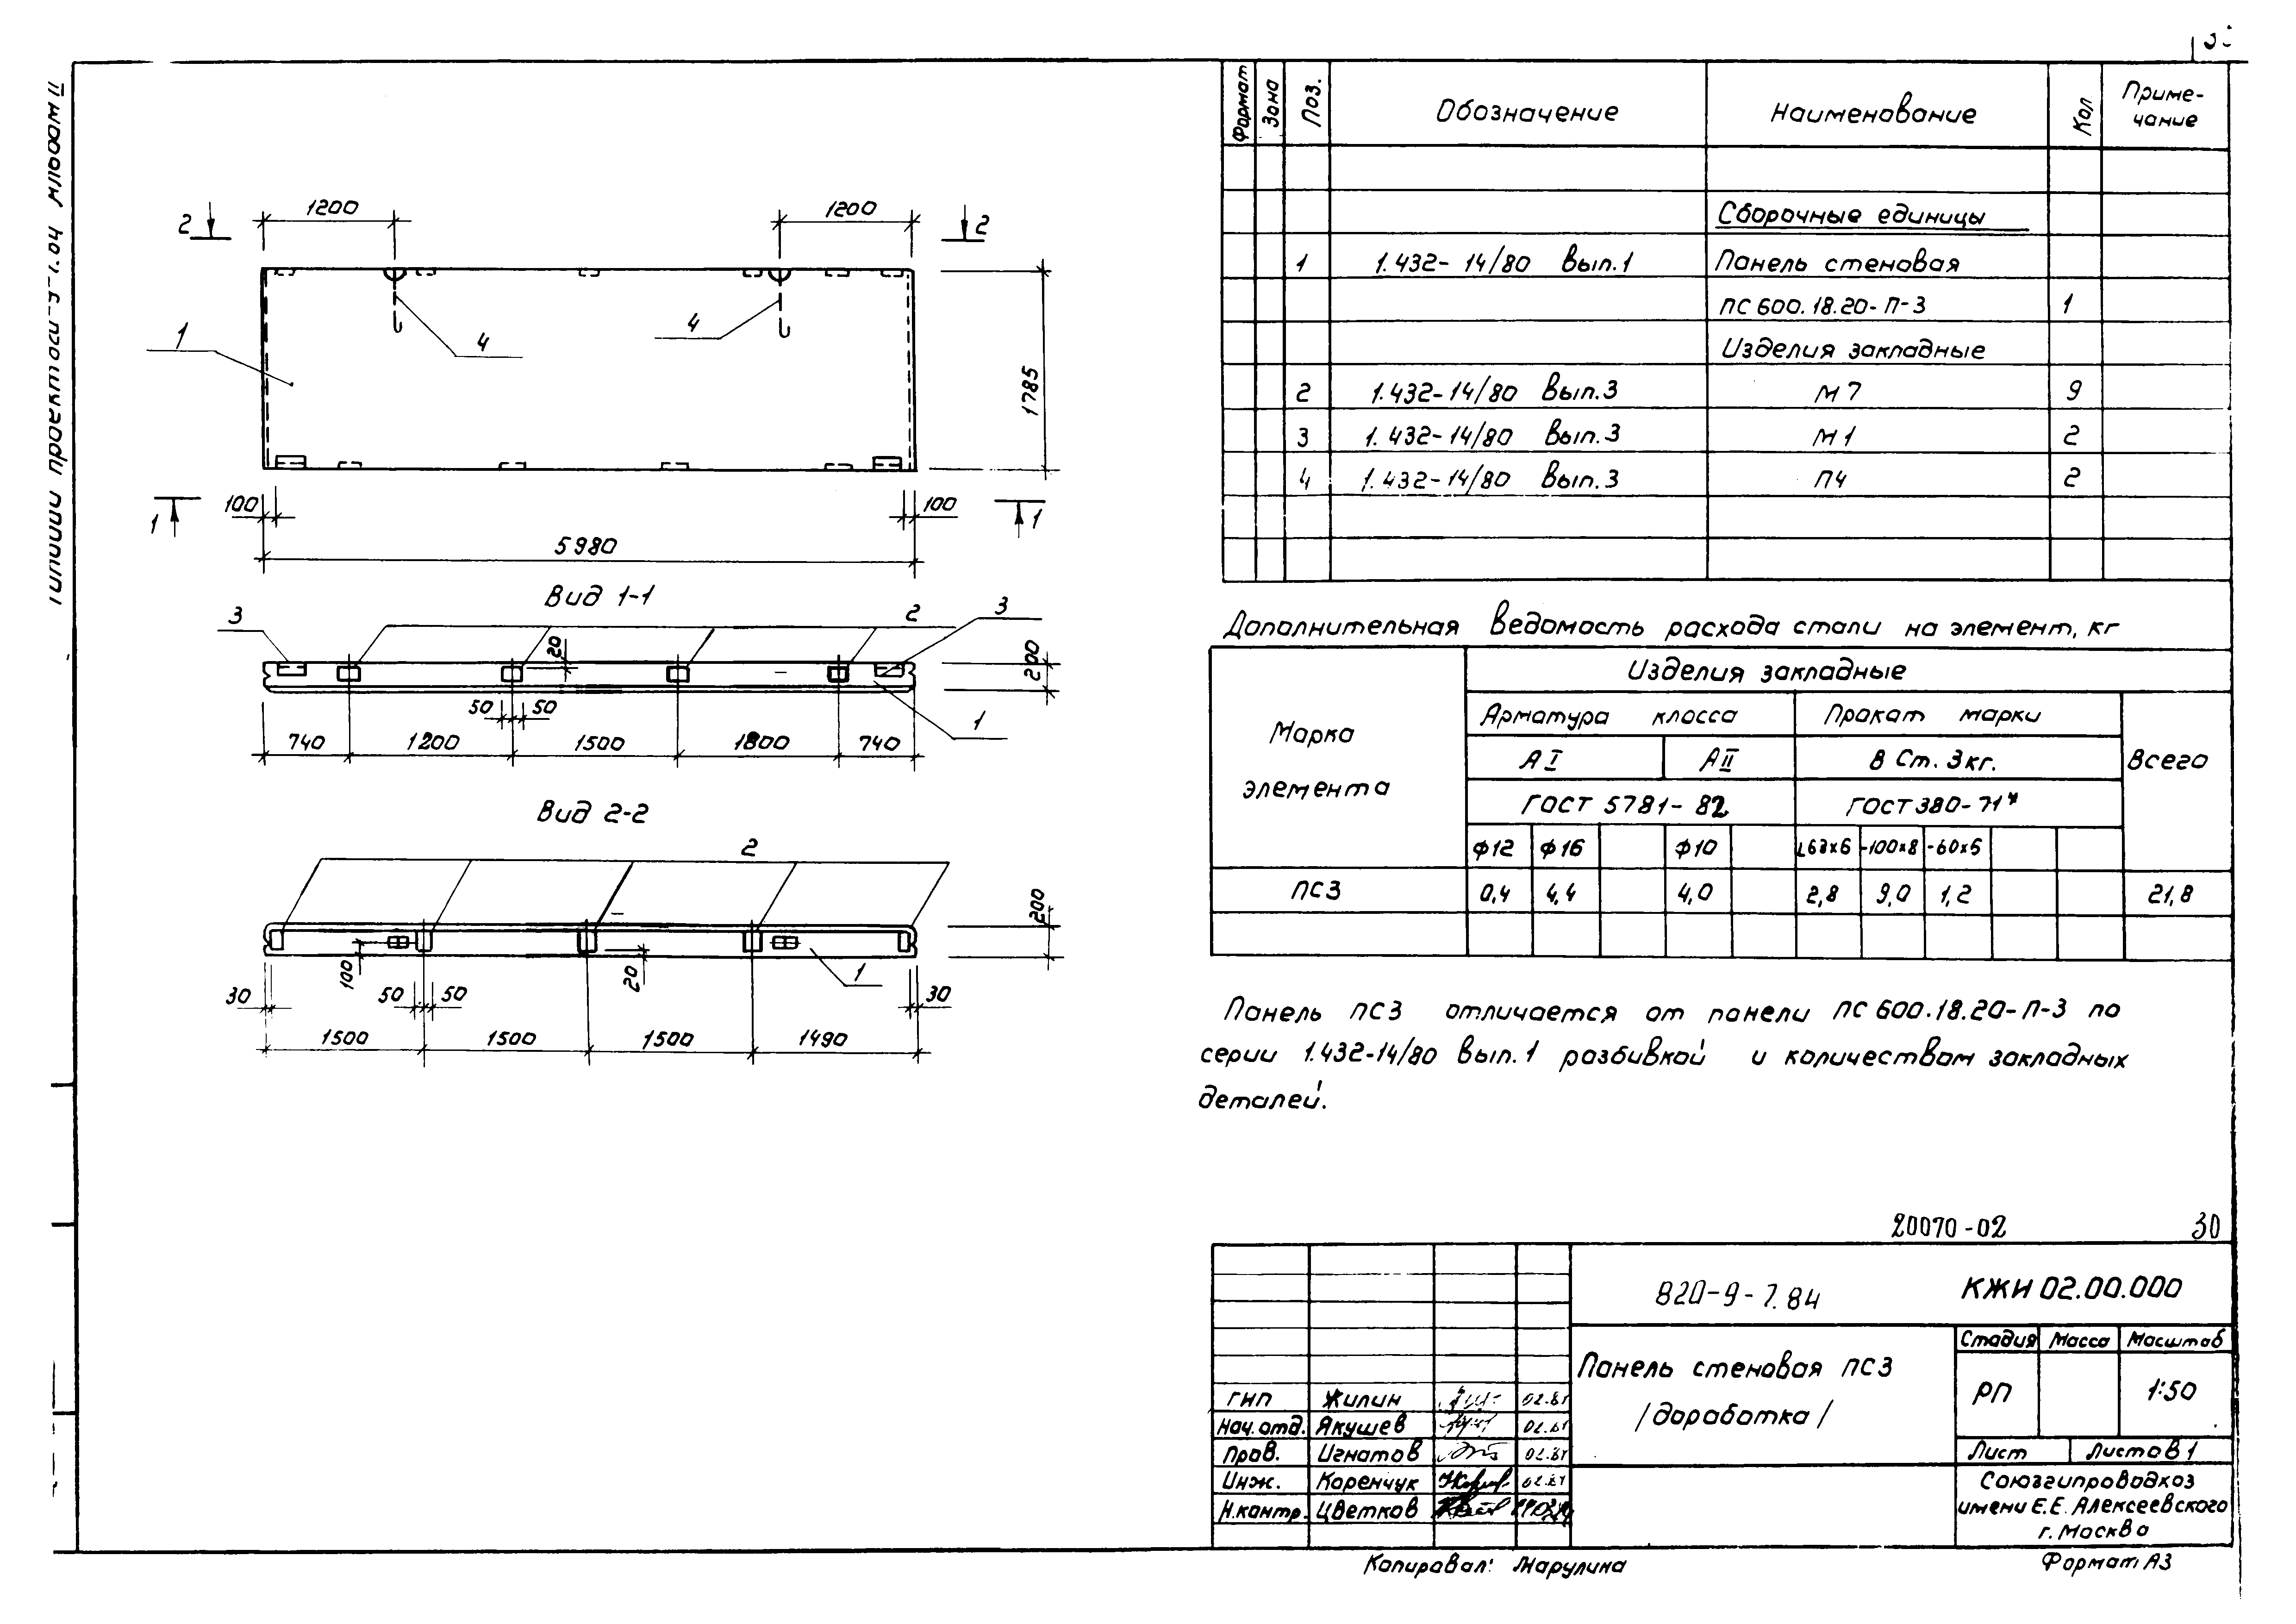 Типовой проектные решения
1200
1200
2
2
4
4
1
1785
100
100
1
1
5980
Вид 1-1
3
2
3
20
200
50
50
1
740
1200
1500
1800
740
Вид 2-2
2
200
100
20
1
30
50
50
30
1500
1500
1500
1490
Формат Зона Поз. Обозначение Наименование Кол Приме-
чание
Сборочные единицы
1 1.432-14/80 Вып.1 Панель стеновая
ПС 600.18.20-П-3 1
Изделия закладные
2 1.432-14/80 Вып.3 М7 9
3 1.432-14/80 Вып.3 М1 2
4 1.432-14/80 Вып.3 П4 2
Дополнительная ведомость расхода стали на элемент, кг
Марка
элемента
Изделия закладные
Арматура класса Прокат марки
АI АII В Ст. 3кг. Всего
ГОСТ 5781-82 ГОСТ 380-71*
ф12 ф16 ф10 L63х6 -100х8 -60х6
ПС3 0,4 4,4 4,0 2,8 9,0 1,2 21,8
Панель ПС3 отличается от панели ПС 600.18.20-П-3 по
серии 1.432-14/80 Вып.1 разбивкой и количеством закладных
деталей.
20070-02 30
820-9-7.84 КЖИ 02.00.000
Панель стеновая ПС3
/доработка/
Стадия Масса Масштаб
РП 1:50
Лист Листов 1
Союзгипроводхоз
имени Е.Е. Алексеевского
г. Москва
ГИП Жилин
Нач.отд. Якушев
Пров. Игнатов
Инж. Коренчук
Н.контр. Цветков
Копировал: Марулина
Формат А3